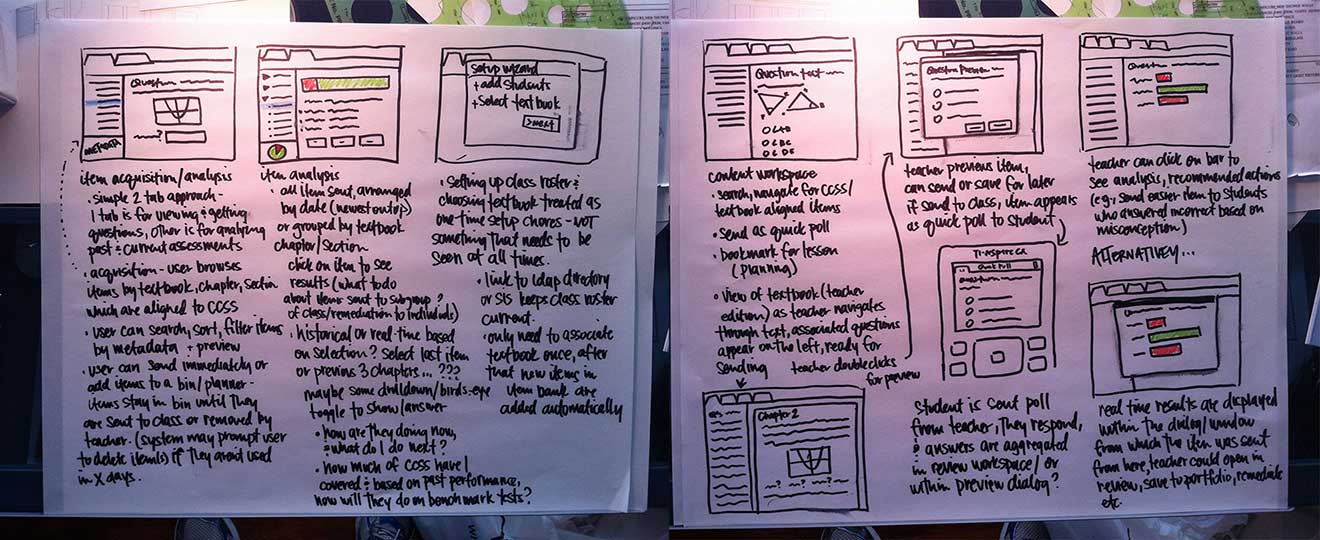 Question
METADATA
item acquisition/analysis
• simple 2 tab approach -
1 tab is for viewing + getting
questions, other is for analyzing
past + current assessments
• acquisition - user browses
items by textbook, chapter, section
which are aligned to CCSS
• user can search, sort, filter items
by metadata + preview
• user can send immediately or
add items to a bin/planner -
items stay in bin until they
are sent to class or removed by
teacher. (system may prompt user
to delete item(s) if they aren't used
in X days.
item analysis
• all item sent, arranged
by date (newest on top)
or grouped by textbook
chapter/section
click on item to see
results (what to do
about items sent to subgroup?
of class/remediation to individuals)
• historical or real-time based
on selection? Select last item
or previous 3 chapters... ???
maybe some drilldown/birds-eye
toggle to show/answer
• how are they doing now,
+ what do I do next?
• how much of CCSS have I
covered + based on past performance,
how will they do on benchmark tests?
setup wizard
+ add students
+ select textbook
> next
• setting up class roster +
choosing textbook treated as
one-time setup chores - NOT
something that needs to be
seen at all times.
• link to ldap directory
or SIS keeps class roster
current.
• only need to associate
textbook once, after
that new items in
item bank are
added automatically
Question text
content workspace
• search, navigate for CCSS/
textbook aligned items
• send as quick poll
• bookmark for lesson
(planning)
• view of textbook (teacher
edition) as teacher navigates
through text, associated questions
appear on the left, ready for
sending
teacher doubleclicks
for preview
Chapter 2
Question Preview
teacher previous item,
can send or save for later
if send to class, item appears
as quick poll to student
TI-nspire CX
Quick Poll
question
student is sent poll
from teacher, they respond,
+ answers are aggregated
in review workspace/or
within preview dialog?
Question
teacher can click on bar to
see analysis, recommended actions
(e.g., send easier item to students
who answered incorrect based on
misconception)
ALTERNATIVELY...
real time results are displayed
within the dialog/window
from which the item was sent
from here, teacher could open in
review, save to portfolio, remediate
etc.